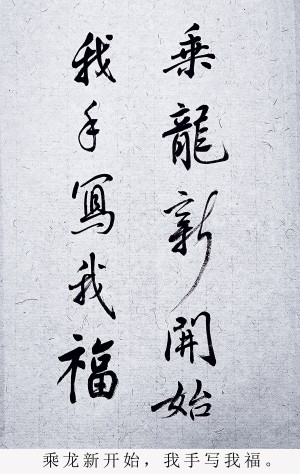 乘龍新開始
我手寫我福
乘龙新开始，我手写我福。